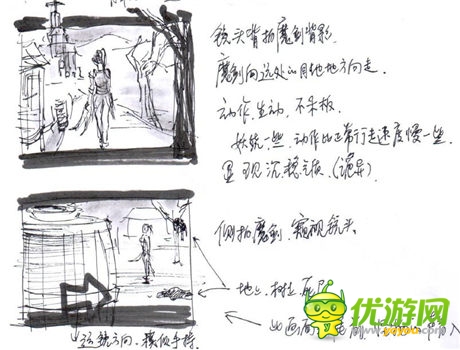 镜头背拍魔剑背影.
魔剑向远处的目地地方向走.
动作生动,不呆板.
妖统一些,动作比正常行走速度慢一些
显现沉稳之夜.(诡异)
侧拍魔剑.窥视镜头.
地上.树枝.
出画
镜方向.模似手持.
优游网